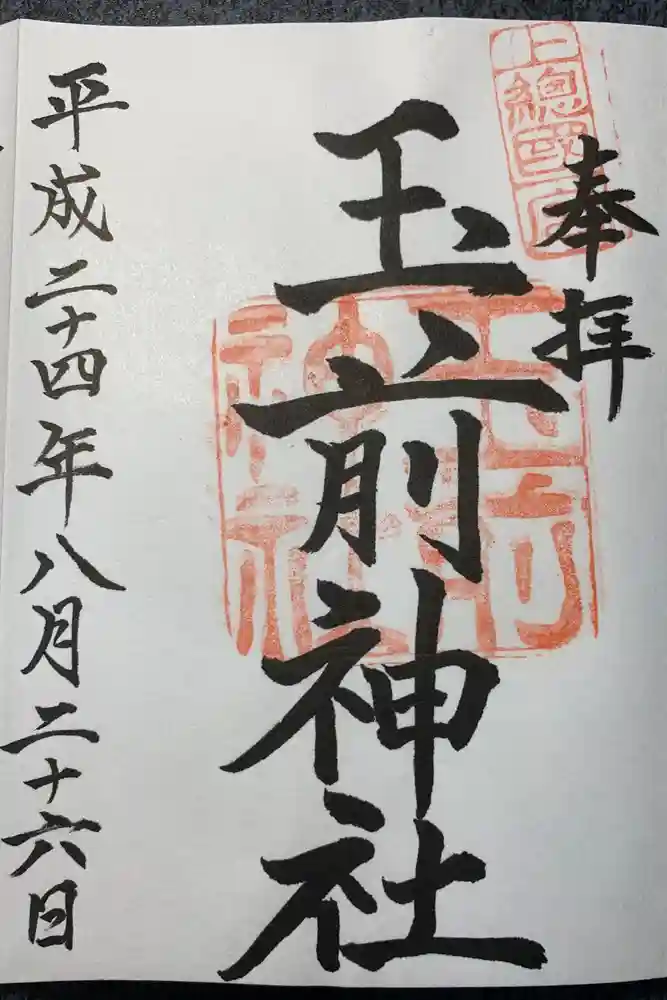 奉拝
玉前神社
平成二十四年八月二十六日
玉前神社